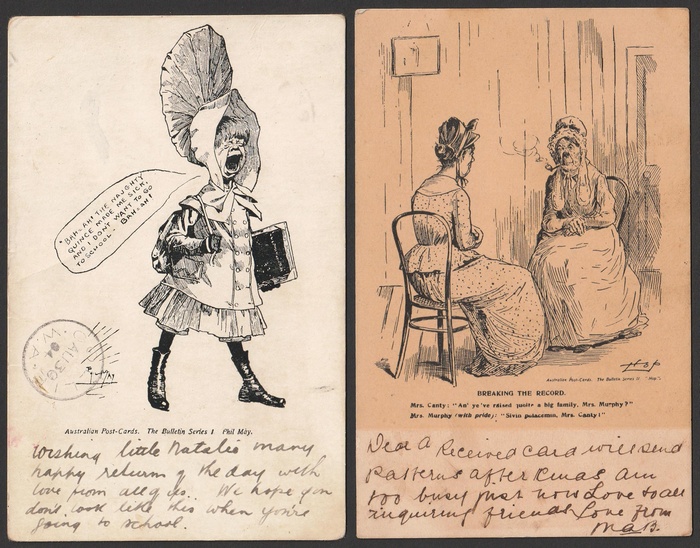 "BAH-AH! THE NAUGHTY
QUINCE MADE ME SICK,
AND I DON'T WANT TO GO
TO SCHOOL. BAH-AH!
AU 30
04
W.A
Phil MAY
Australian Post-Cards. The Bulletin Series 1 Phil May.
Wishing little Natalie many
happy returns of the day with
love from all of us. We hope you
dont look like this when you're
going to school.
Australian Post-Cards. The Bulletin Series II "Hop".
BREAKING THE RECORD.
Mrs. Canty: "An' ye've raised quite a big family, Mrs. Murphy?"
Mrs. Murphy (with pride): "Sivin polacemin, Mrs. Canty!"
Dear A Received card will send
patterns after Xmas am
too busy just now Love to all
inquiring friends Love from